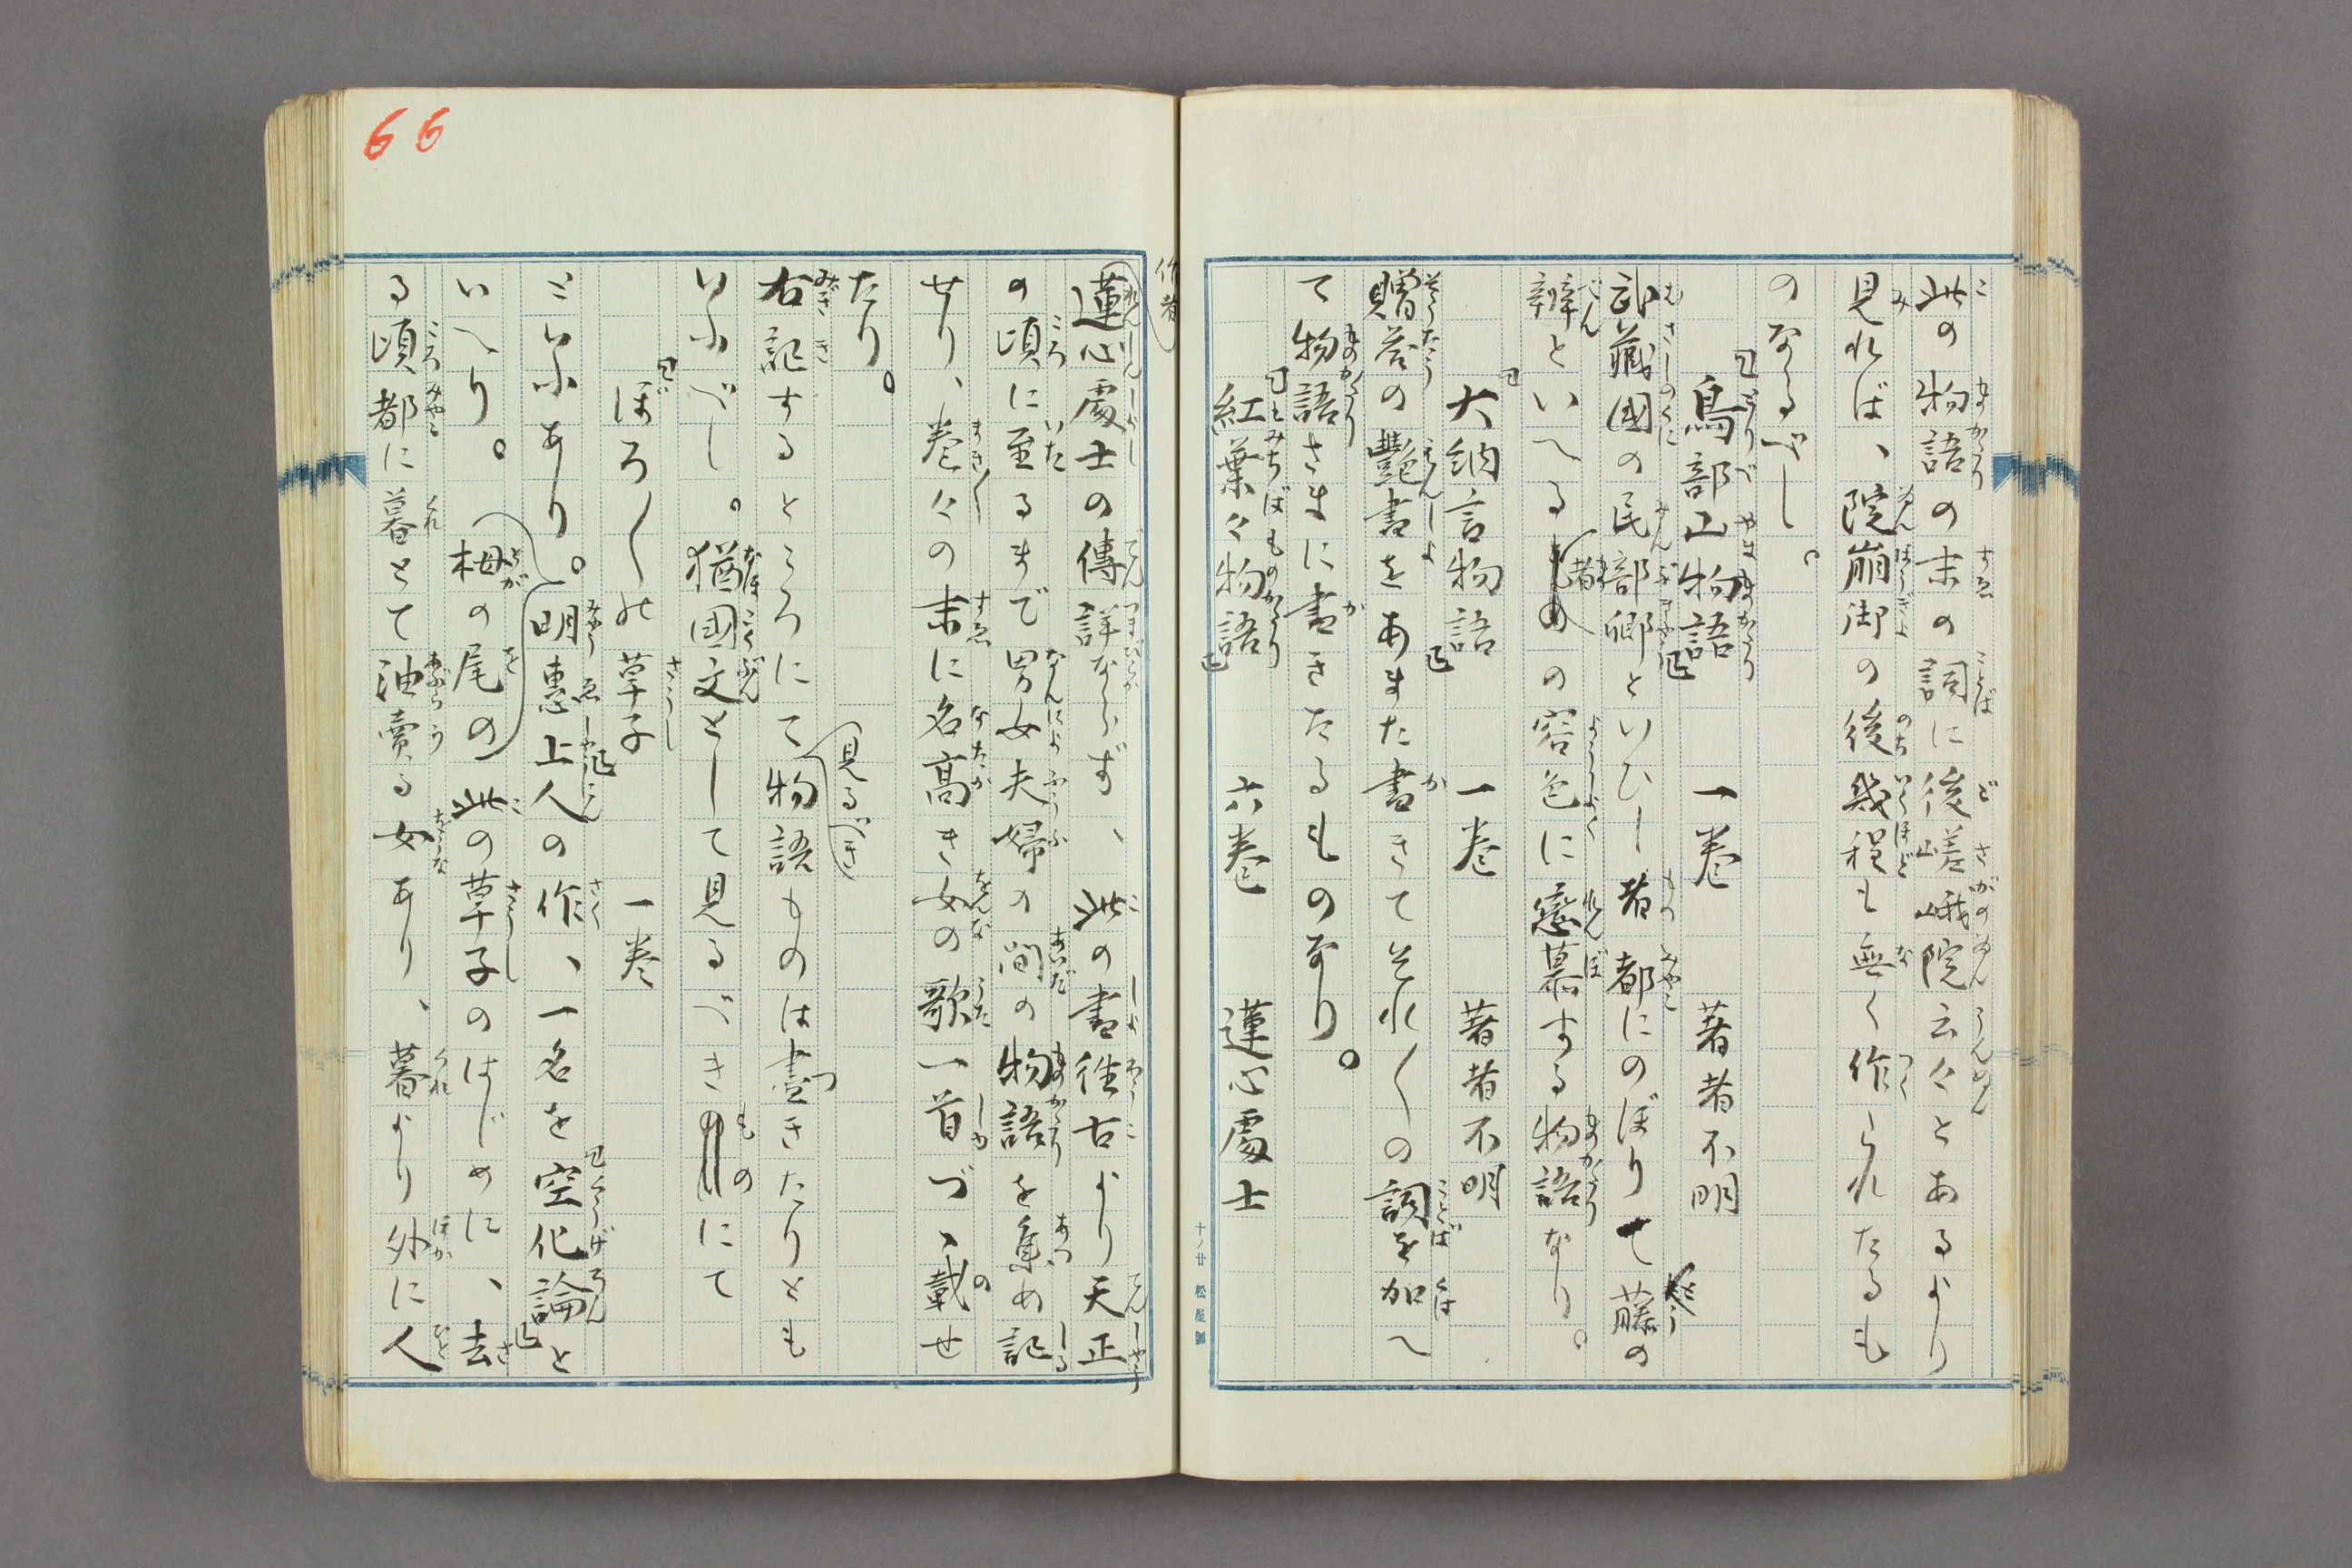 此の物語の末の詞に後嵯峨院云々とあるより
見れば、院崩御の後幾程も無く作られたるも
のなるべし。
鳥部山物語　一巻　著者不明
武藏國の民部卿といひし者都にのぼりて藤の
辨といへる者の容色に戀慕する物語なり。
大納言物語　一巻　著者不明
贈答の艷書をあまた書きてそれ〱の詞を加へ
て物語さまに書きたるものなり。
紅葉々物語　六巻　蓮心處士
十ノ廿 松屋製
作者
蓮心處士の傳詳ならず、此の書往古より天正
の頃に至るまで男女夫婦の間の物語を集め記
せり、巻々の末に名高き女の歌一首づゝ載せ
たり。
見るべき
右記するところにて物語ものは盡きたりとも
いふべし。猶国文として見るべきものにて
ぼろ〱の草子　一巻
ニいふあり。明惠上人の作、一名を空化論と
いへり。栂の尾の此の草子のはじめに、去
る頃都に暮とて油賣る女あり、暮より外に人
66